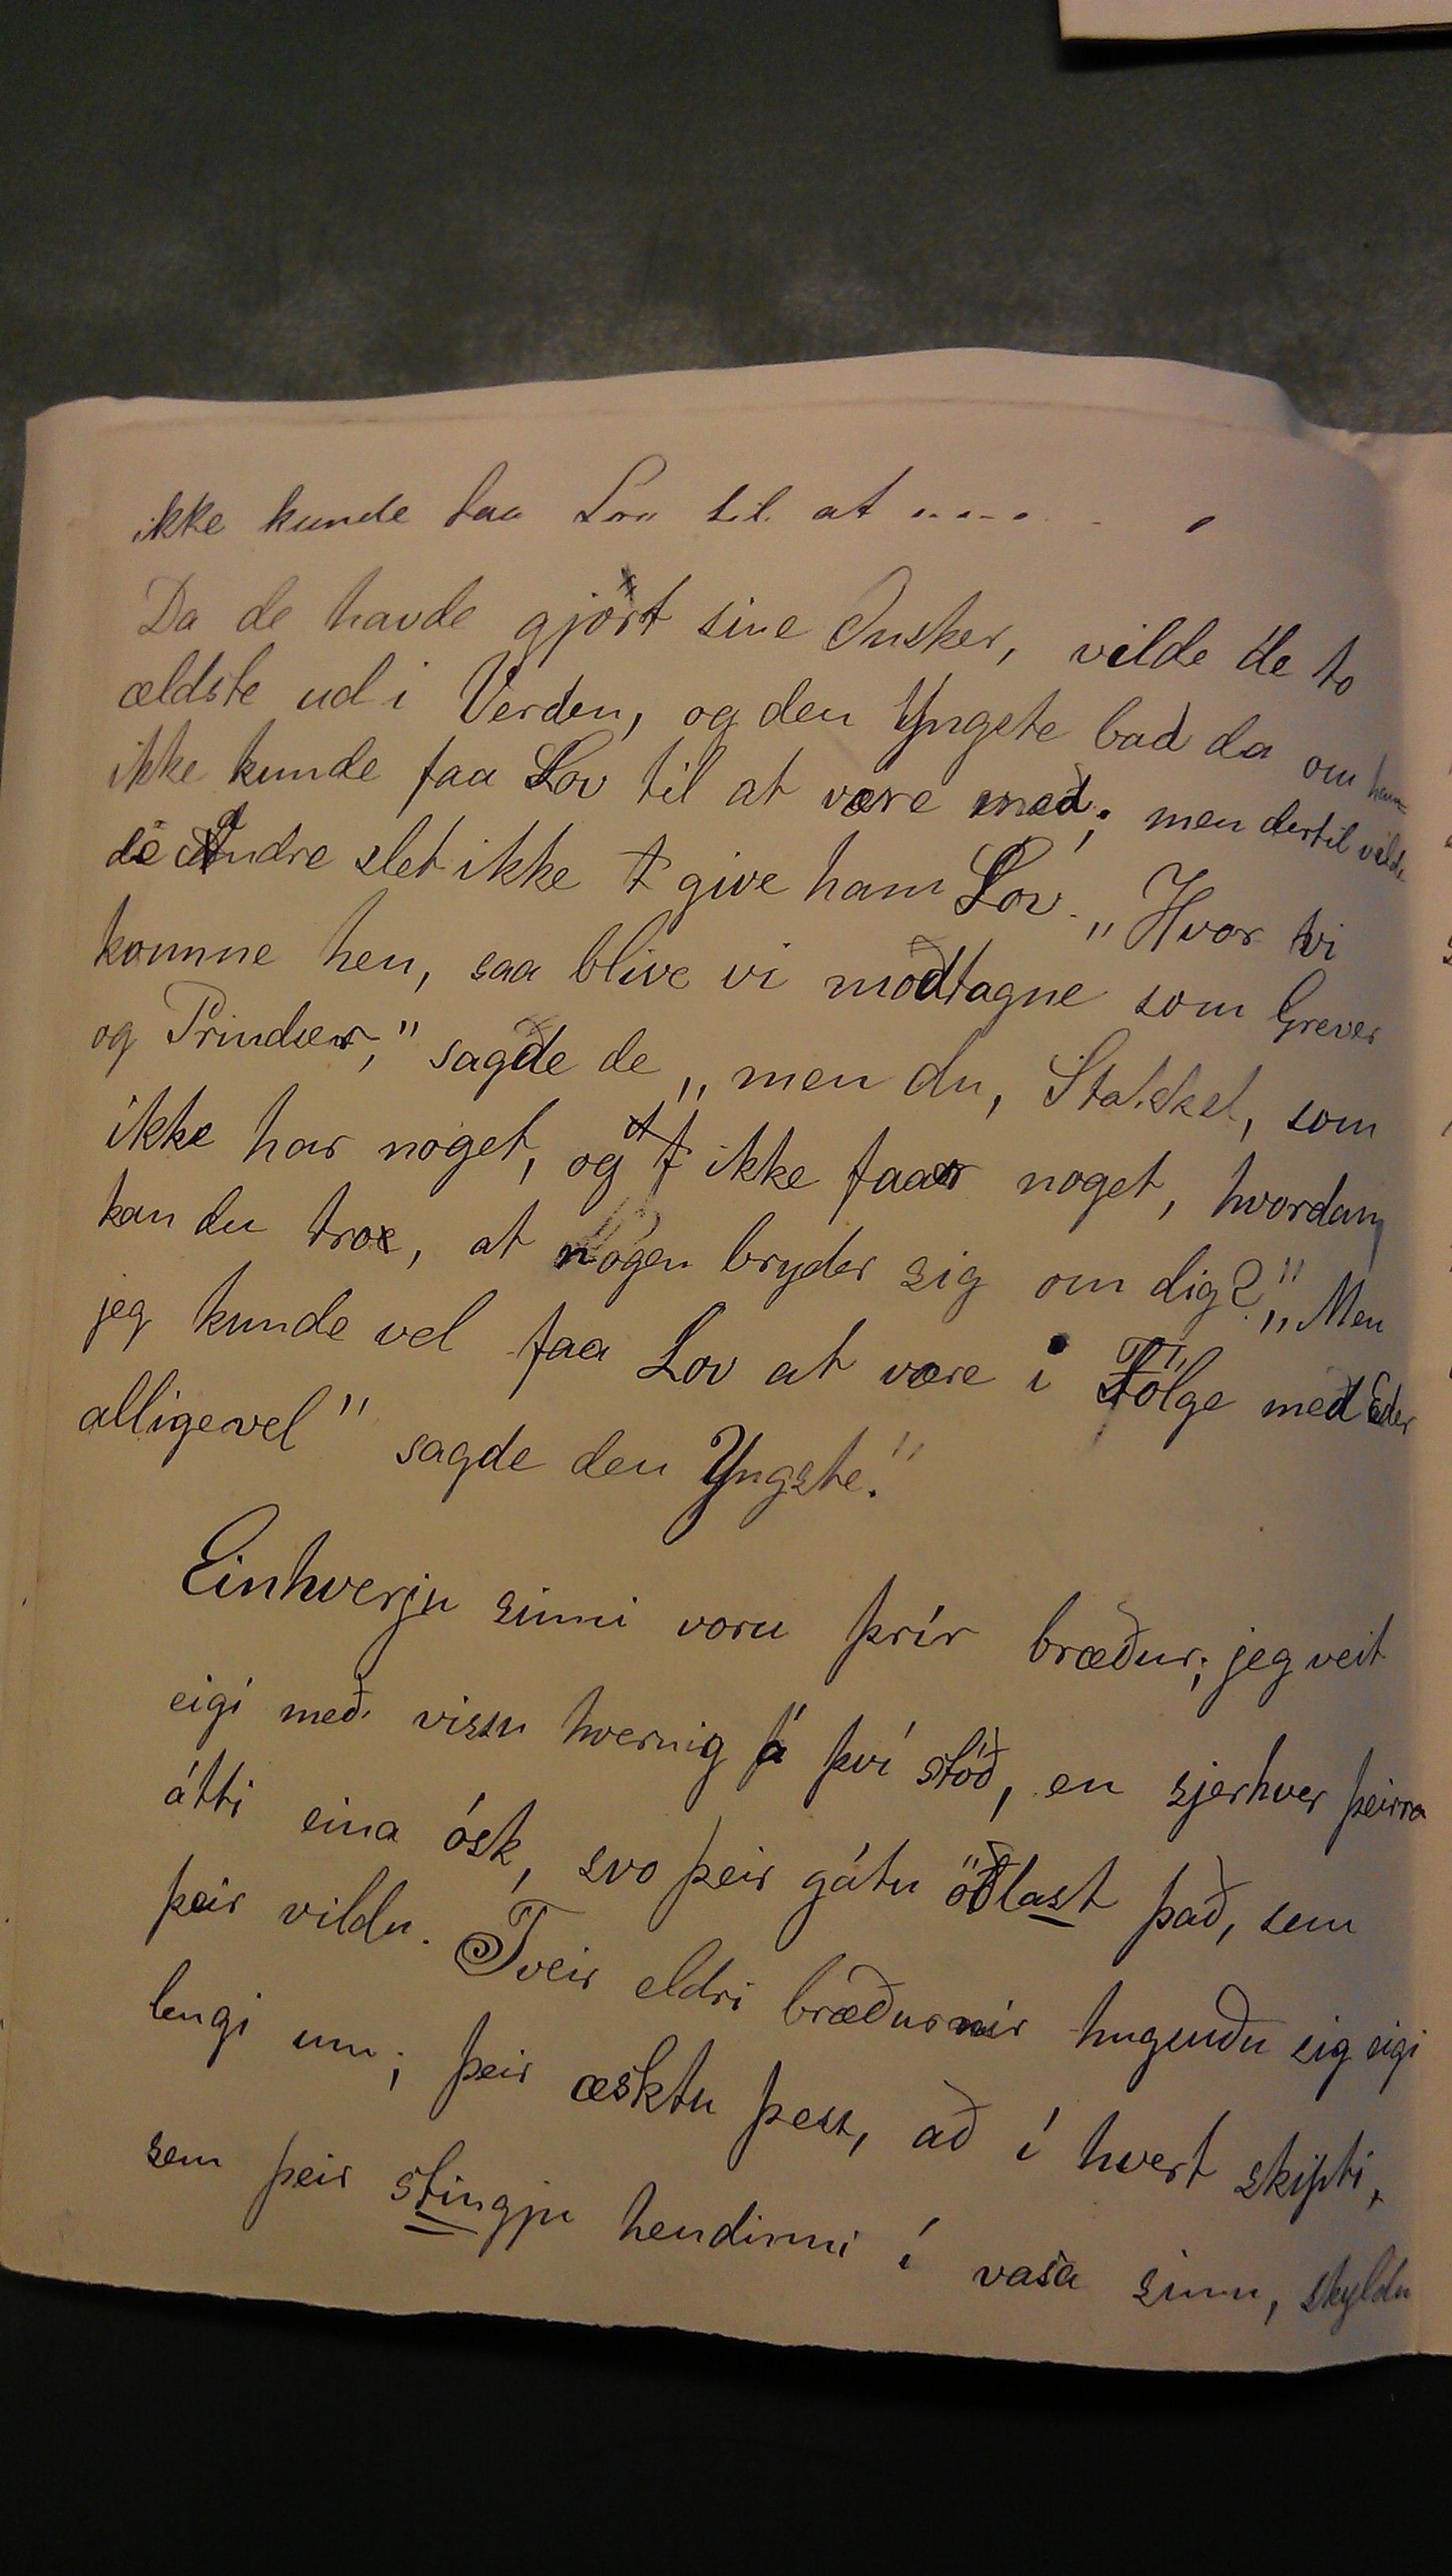 ikke kunde faa Lov til at . . . . .
Da de havde gjört sine Ønsker, vilde de to
ældste ud i Verden, og den Yngste bad da om han
ikke kunde faa Lov til at være med; men dertil vilde
de andre slet ikke give ham Lov. „Hvor vi
komme hen, saa blive vi modtagne som Grever
og Prindser," sagde de „men du, Stakkel, som
ikke har noget, og ikke faaer noget, hvordan
kan du troe, at nogen bryder sig om dig?" „Men
jeg kunde vel faa Lov at være i Fölge med Eder
alligevel" sagde den Yngste."
Einhverju sinni voru þrír bræður; jeg veit
eigi með vissu hvernig á því stóð, en sjerhver þeirra
átti eina ósk, svo þeir gátu öðlast það, sem
þeir vildu. Tveir eldri bræðurnir hugsuðu sig eigi
lengi um; þeir æsktu þess, að í hvert skipti,
sem þeir stingju hendinni í vasa sinn, skyldu